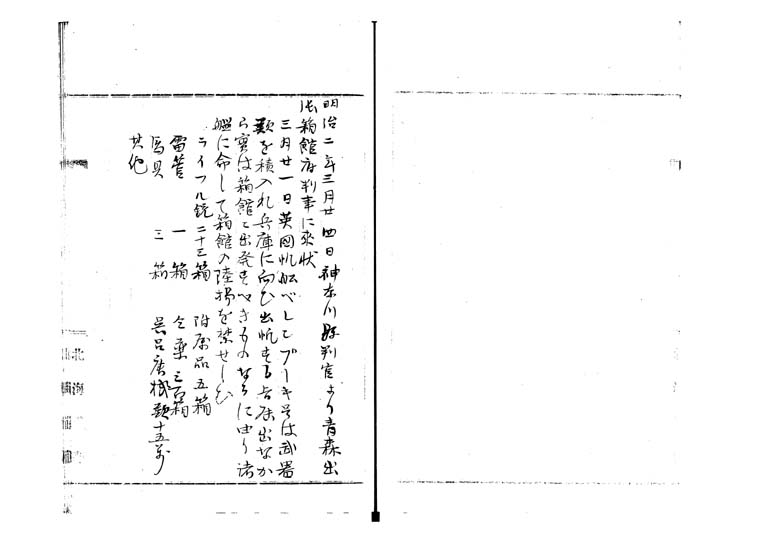 明治二年三月廿四日神奈川縣判官より青森出
張箱館府判事に来状
三月廿一日英国帆船ペレドブーキ号は武器
類を積入れ兵庫に向ひ出帆する旨届出なか
ら実は箱館に出発すへきものなるに由り諸
艦に命して箱館の陸揚を禁せしむ
ライフル銃 二十三箱 附属品 五箱
雷管 一箱 仝薬 三百箱
馬具 三箱 呉呂廣織類 十五箇
其他
北海